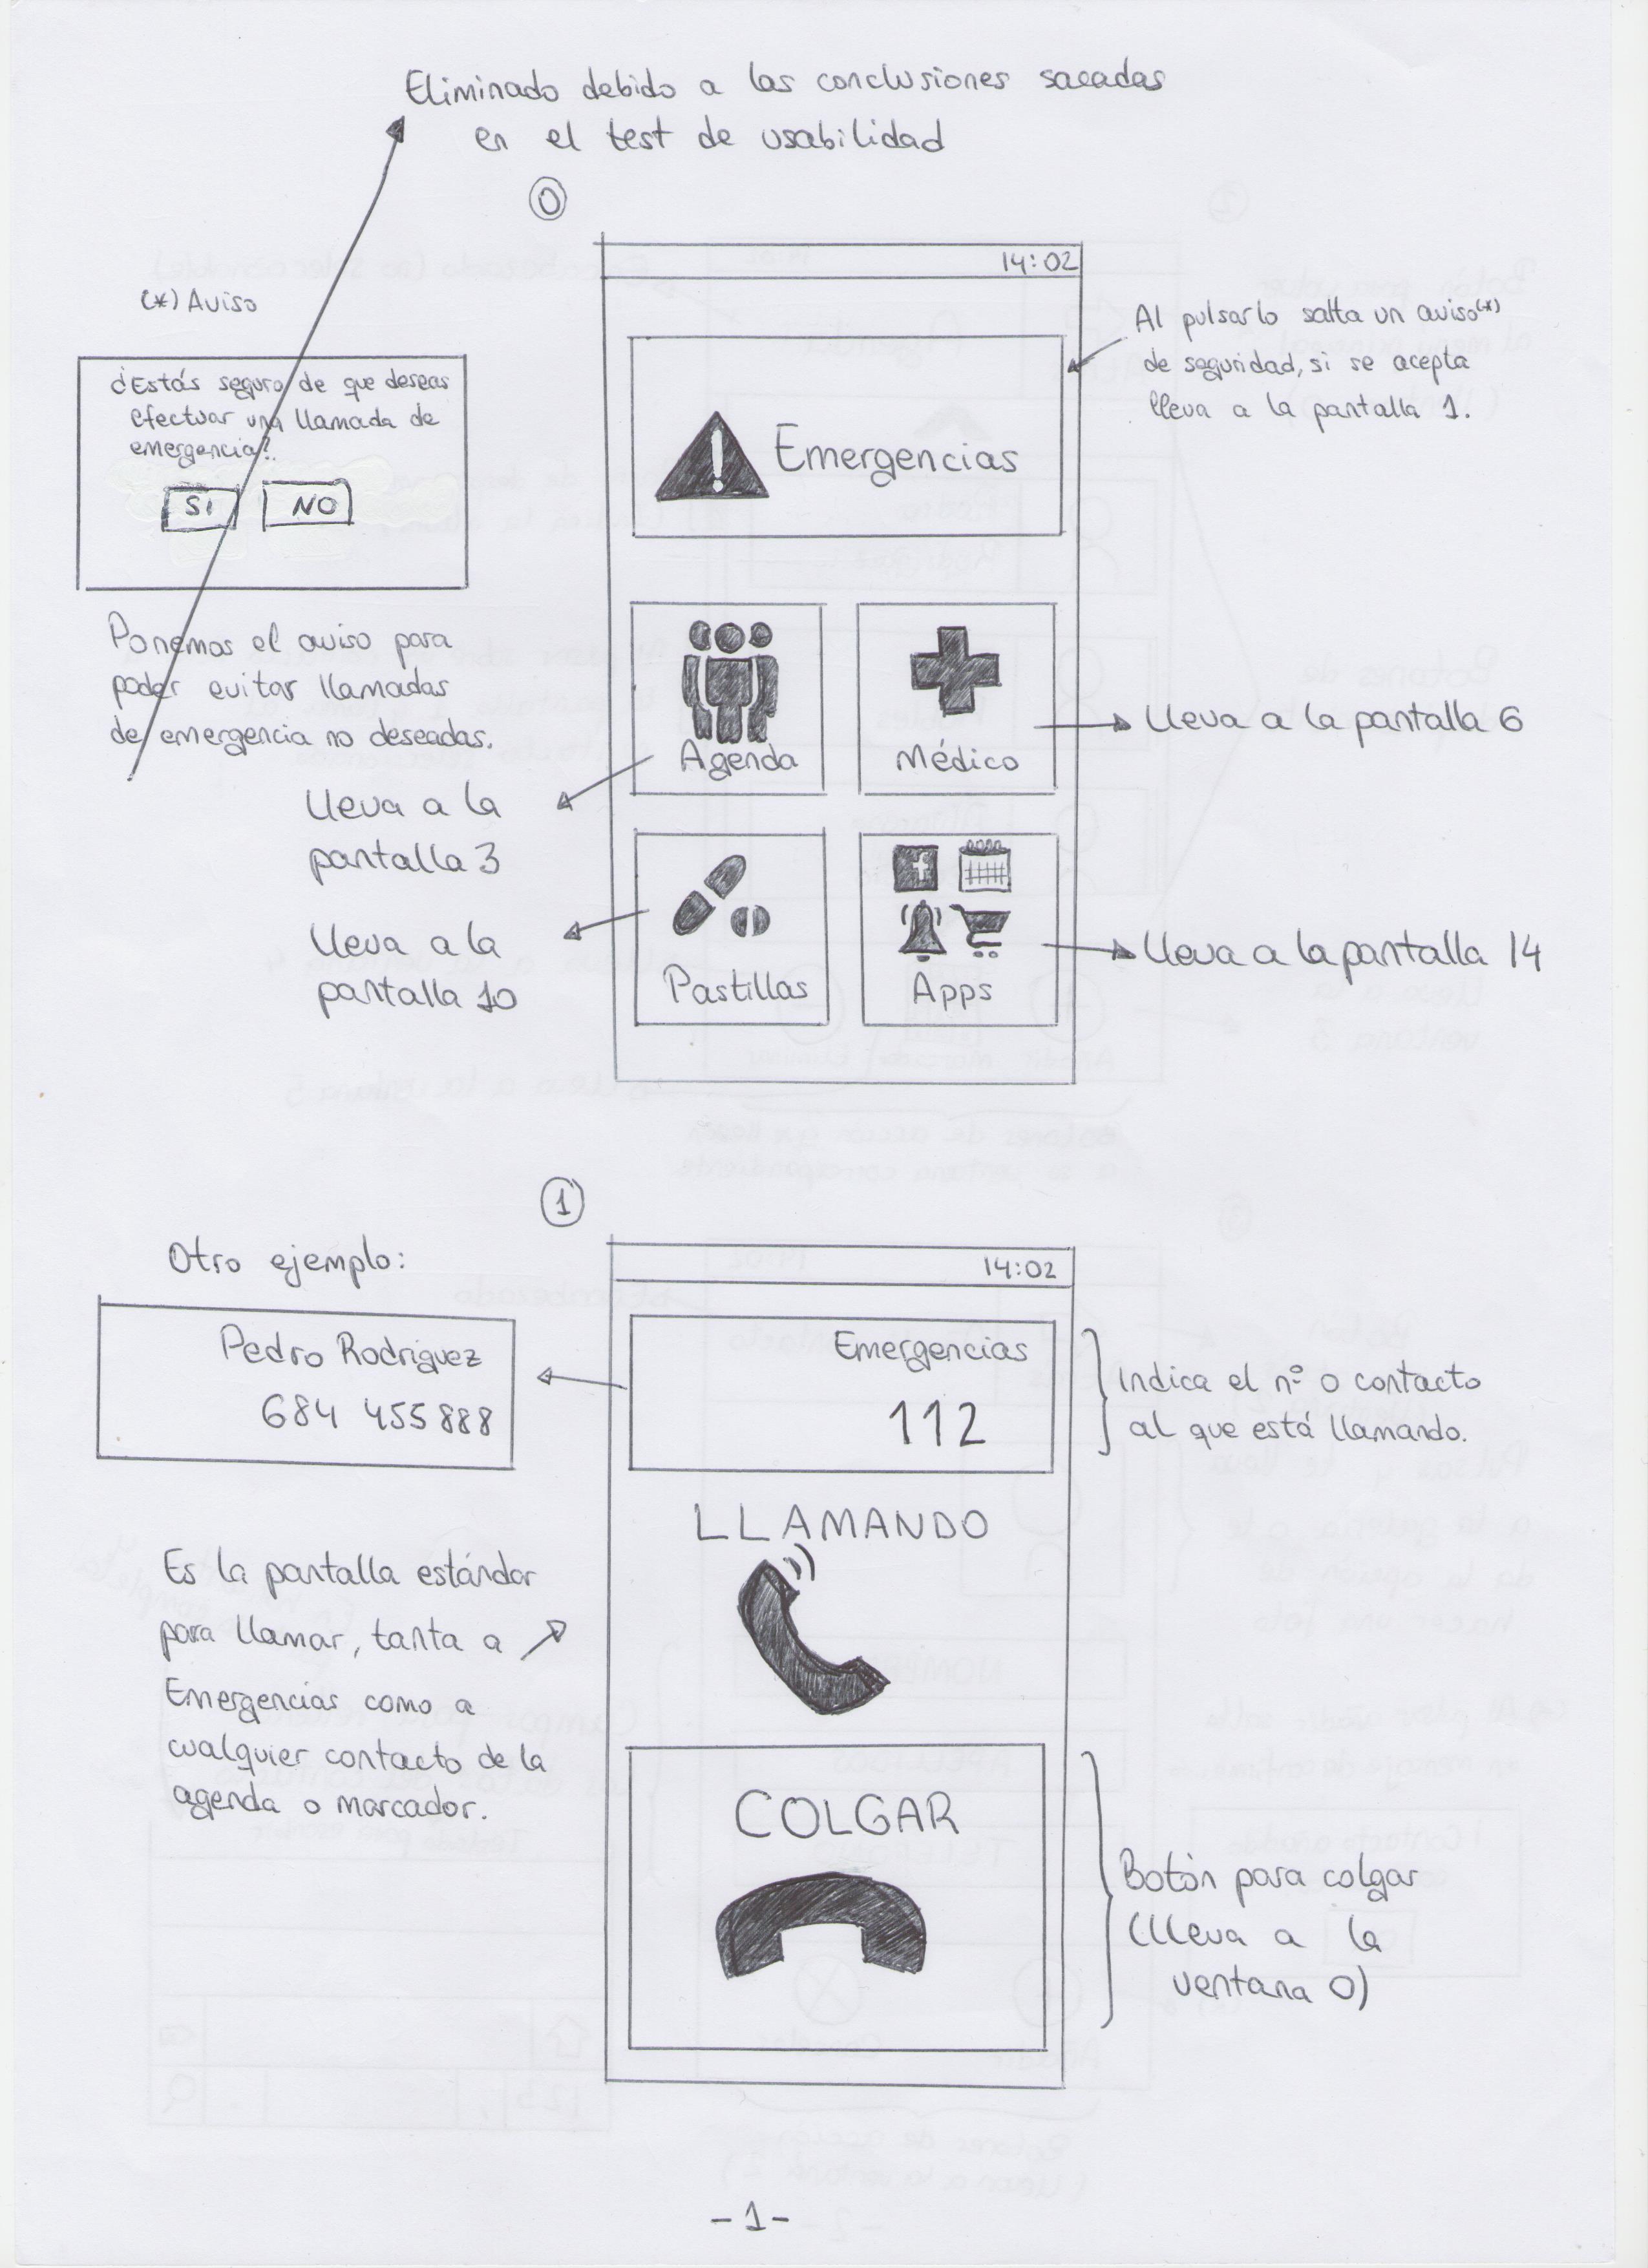 Eliminado debido a las conclusiones sacadas
en el test de usabilidad
0
14:02
(*) Aviso
¿Estás seguro de que deseas
efectuar una llamada de
emergencia?
SI NO
Ponemos el aviso para
poder evitar llamadas
de emergencia no deseadas.
Al pulsarlo salta un aviso(*)
de seguridad, si se acepta
lleva a la pantalla 1.
Emergencias
Agenda
Médico
Lleva a la pantalla 6
Lleva a la
pantalla 3
Pastillas
Apps
Lleva a la
pantalla 10
Lleva a la pantalla 14
1
14:02
Otro ejemplo:
Pedro Rodriguez
684 455888
Emergencias
112
Indica el nº o contacto
al que está llamando.
LLAMANDO
Es la pantalla estándar
para llamar, tanta a
Emergencias como a
cualquier contacto de la
agenda o marcador.
COLGAR
Botón para colgar
(lleva a la
ventana 0)
-1-